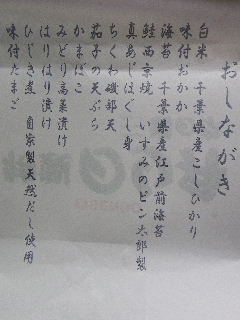 おしながき
白米　千葉県産こしひかり
味付おかか
海苔　千葉県産江戸前海苔
鮭西京焼　いすみのビン太郎製
真あじほぐし身
ちくわ磯部天
茄子の天ぷら
かまぼこ
みどり高菜漬け
はりはり漬け
ひじき煮　自家製天然だし使用
味付たまご